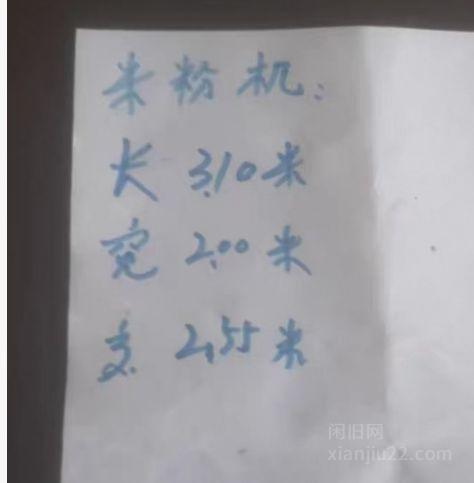 米粉机:
长 3.10米
宽 2.00米
2.55米
闲旧网
xianjiu22.com